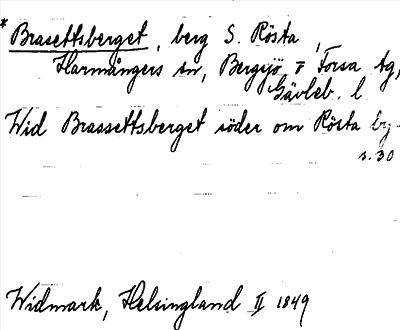 * Brasettsberget, berg S. Rösta,
Harmångers sn, Bergsjö o Forsa tg,
Gävleb. l
Wid Brassettsberget söder om Rösta by.
s. 30
Widmark, Helsingland II 1849